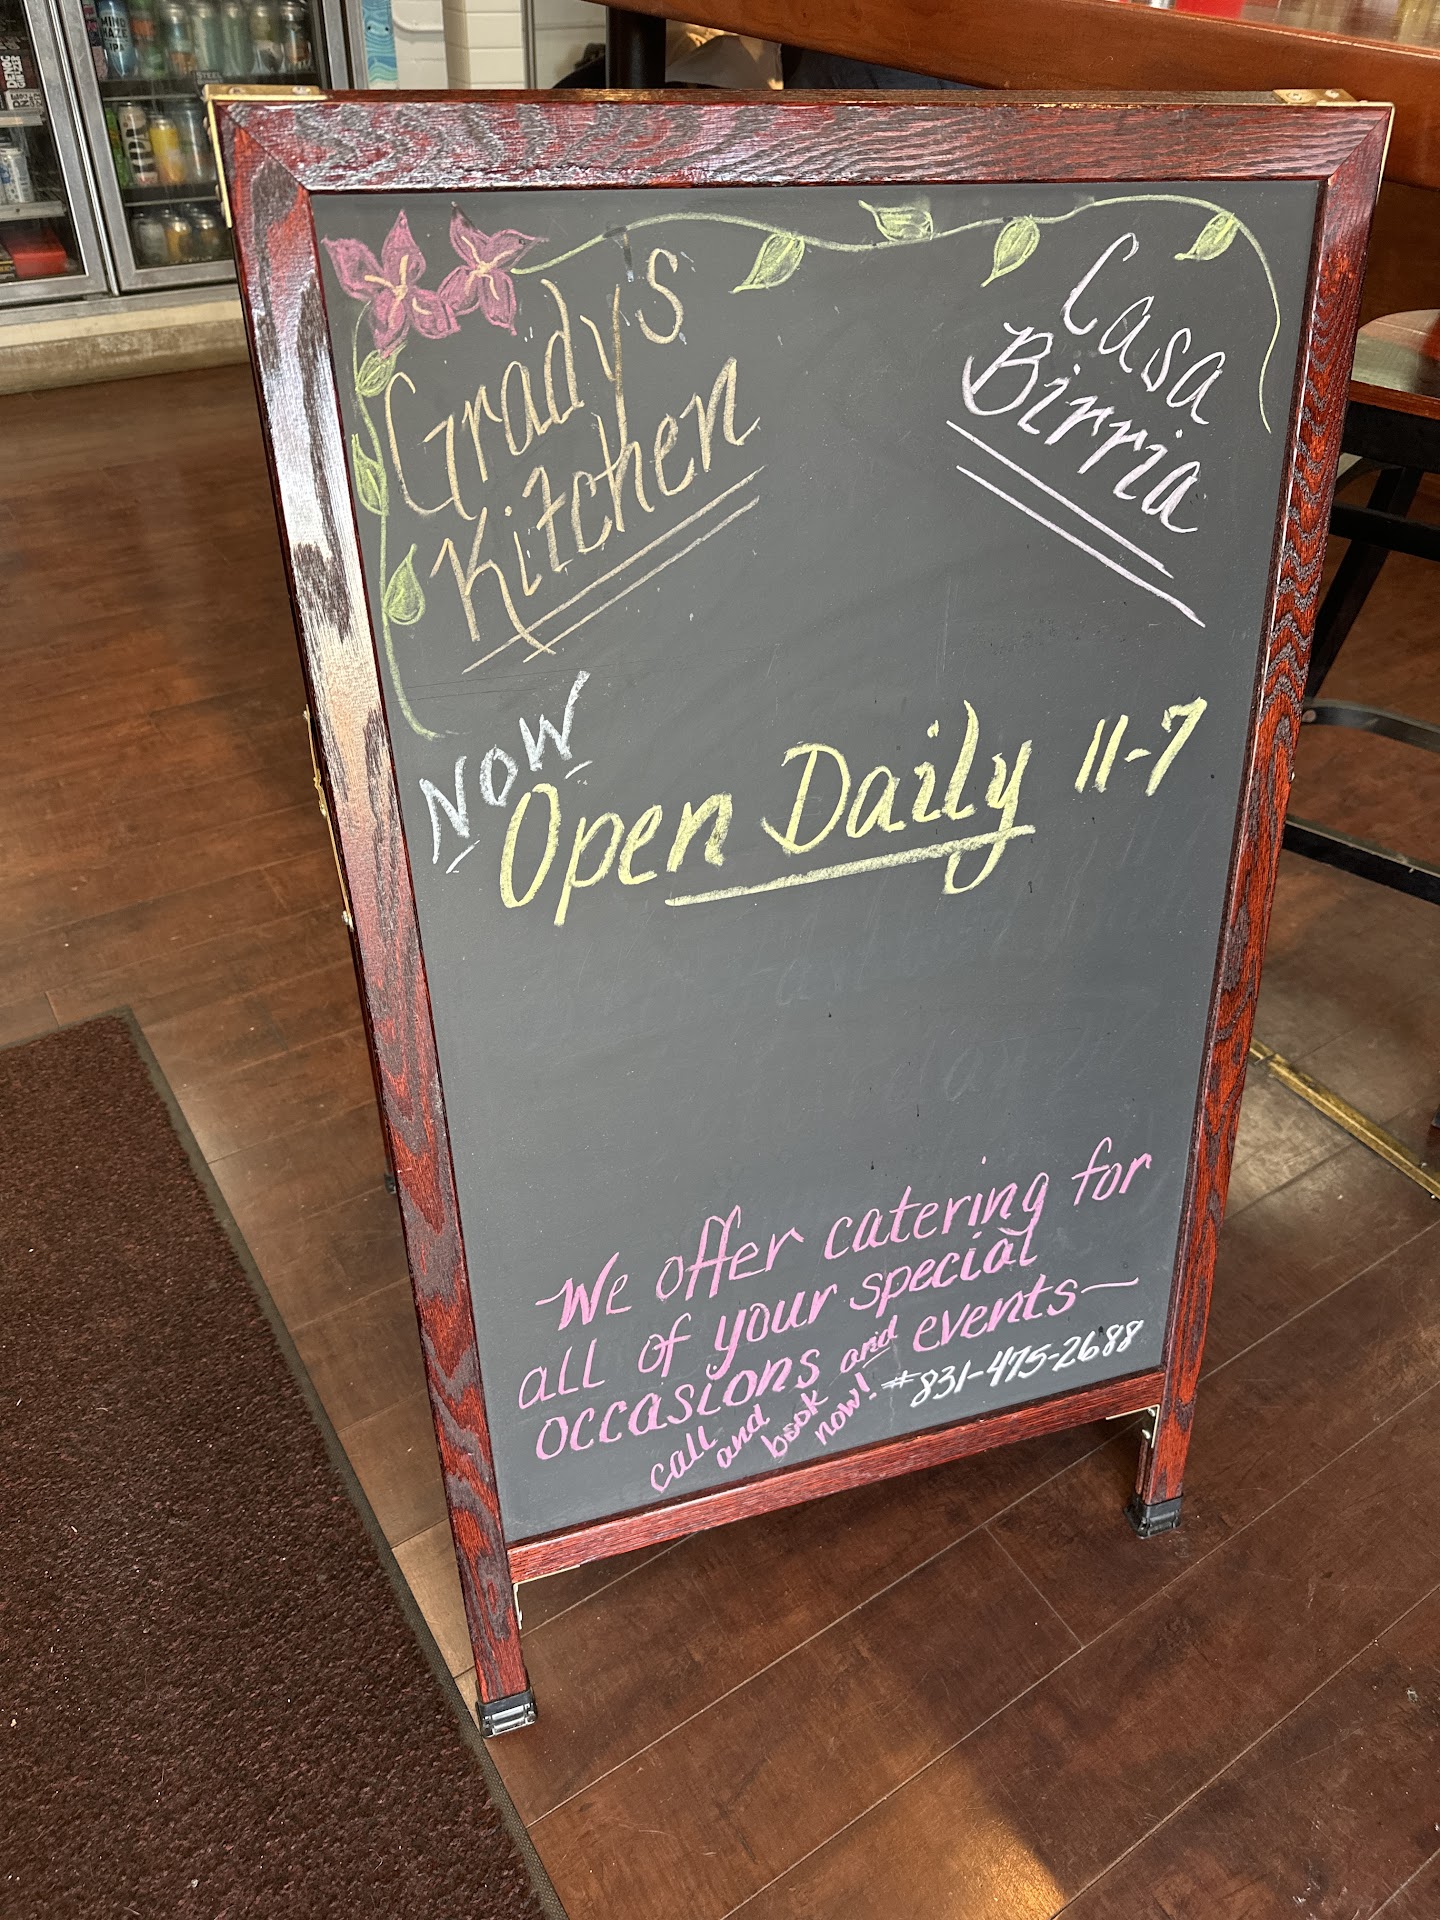 MIND
HAZE
IPA
STEEL
Gradys
Kitchen
Casa
Birria
NOW
Open Daily 11-7
We offer catering for
all of your special
occasions and events~
call
and
book
now!
#831-475-2688